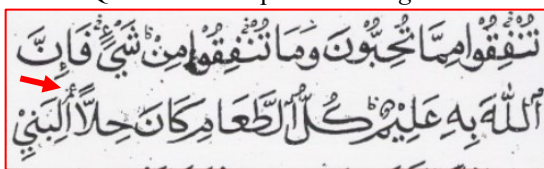 تُنْفِقُوا مِمَّا تُحِبُّونَ وَمَا تُنْفِقُوا مِنْ شَيْءٍ فَإِنَّ
اللَّهَ بِهِ عَلِيمٌ كُلُّ الطَّعَامِ كَانَ حِلاًّ لِبَنِيْ